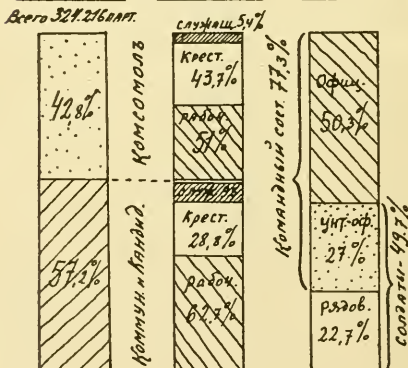 Всего 324.216 парт.
42,8%
57,2%
Комсомолъ
Коммун. и Кандид.
служащ. 5,4%
Крест.
43,7%
рабоч.
51%
Крест.
28,8%
рабоч.
62,7%
Командный сост. 77,3%
Офиц.
50,3%
унт-оф.
27%
рядов.
22,7%
солдати-49,7%